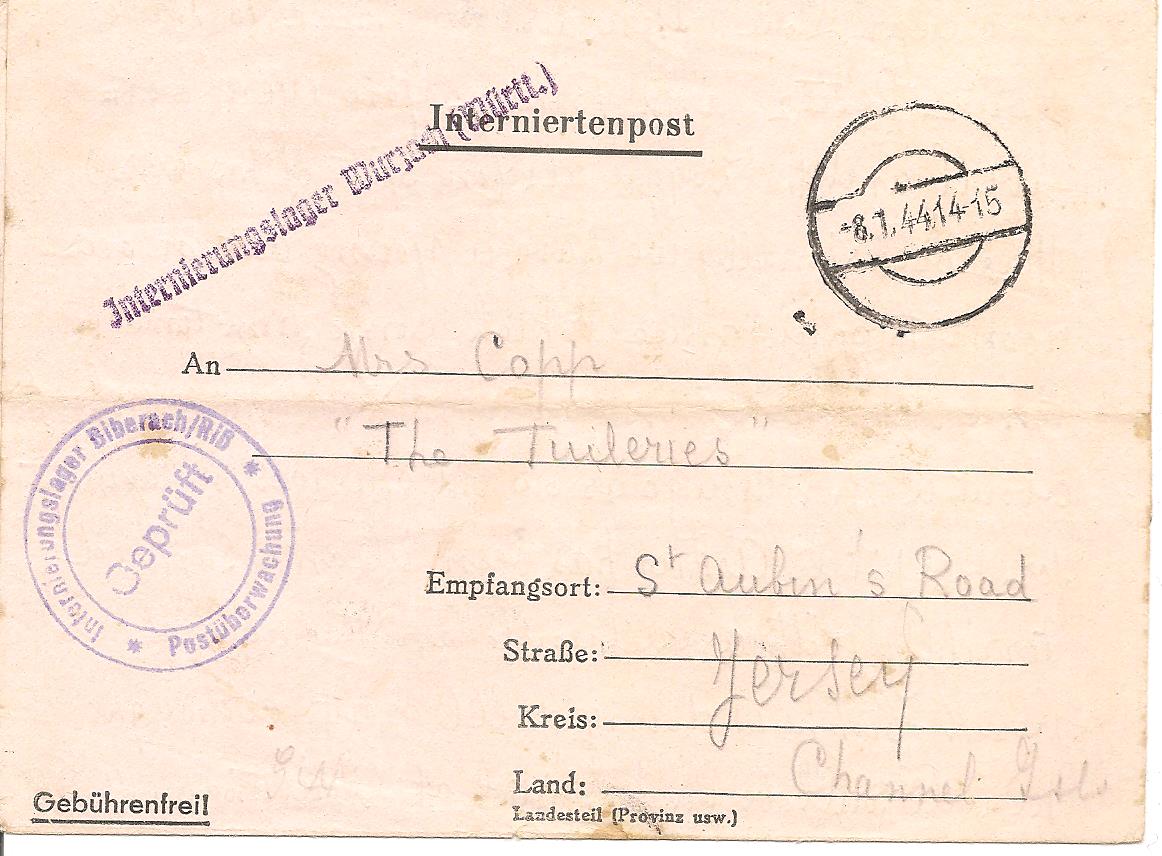 Interniertenpost
Internierungslager Wurzach (Württ.)
-8.1.44.14-15
An Mrs Copp
"The Tuileries"
Internierungslager Biberach/Riß * Postüberwachung *
Geprüft
Empfangsort: St Aubin's Road
Straße: Jersey
Kreis:
Land: Channel Isl.
Landesteil (Provinz usw.)
Gebührenfrei!